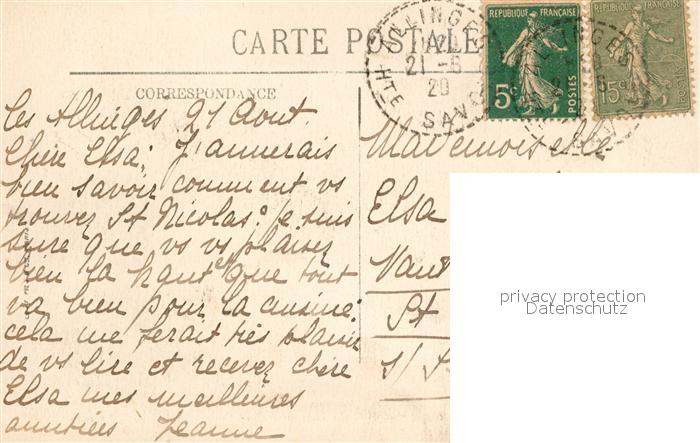 CARTE POSTALE
ALLINGES
21-8
20
HTE SAVOIE
REPUBLIQUE FRANÇAISE
5c
POSTES
REPUBLIQUE FRANÇAISE
15c
CORRESPONDANCE
Les Allinges 21 Aout
Chère Elsa, J'aimerais
bien savoir comment vs
trouvez St Nicolas. Je suis
sure que vs vs plaisez
bien là haut et que tout
va bien pour la cuisine.
cela me ferait très plaisir
de vs lire et recevez chère
Elsa mes meilleures
amitiées Jeanne
Mademoiselle
Elsa
St
privacy protection
Datenschutz